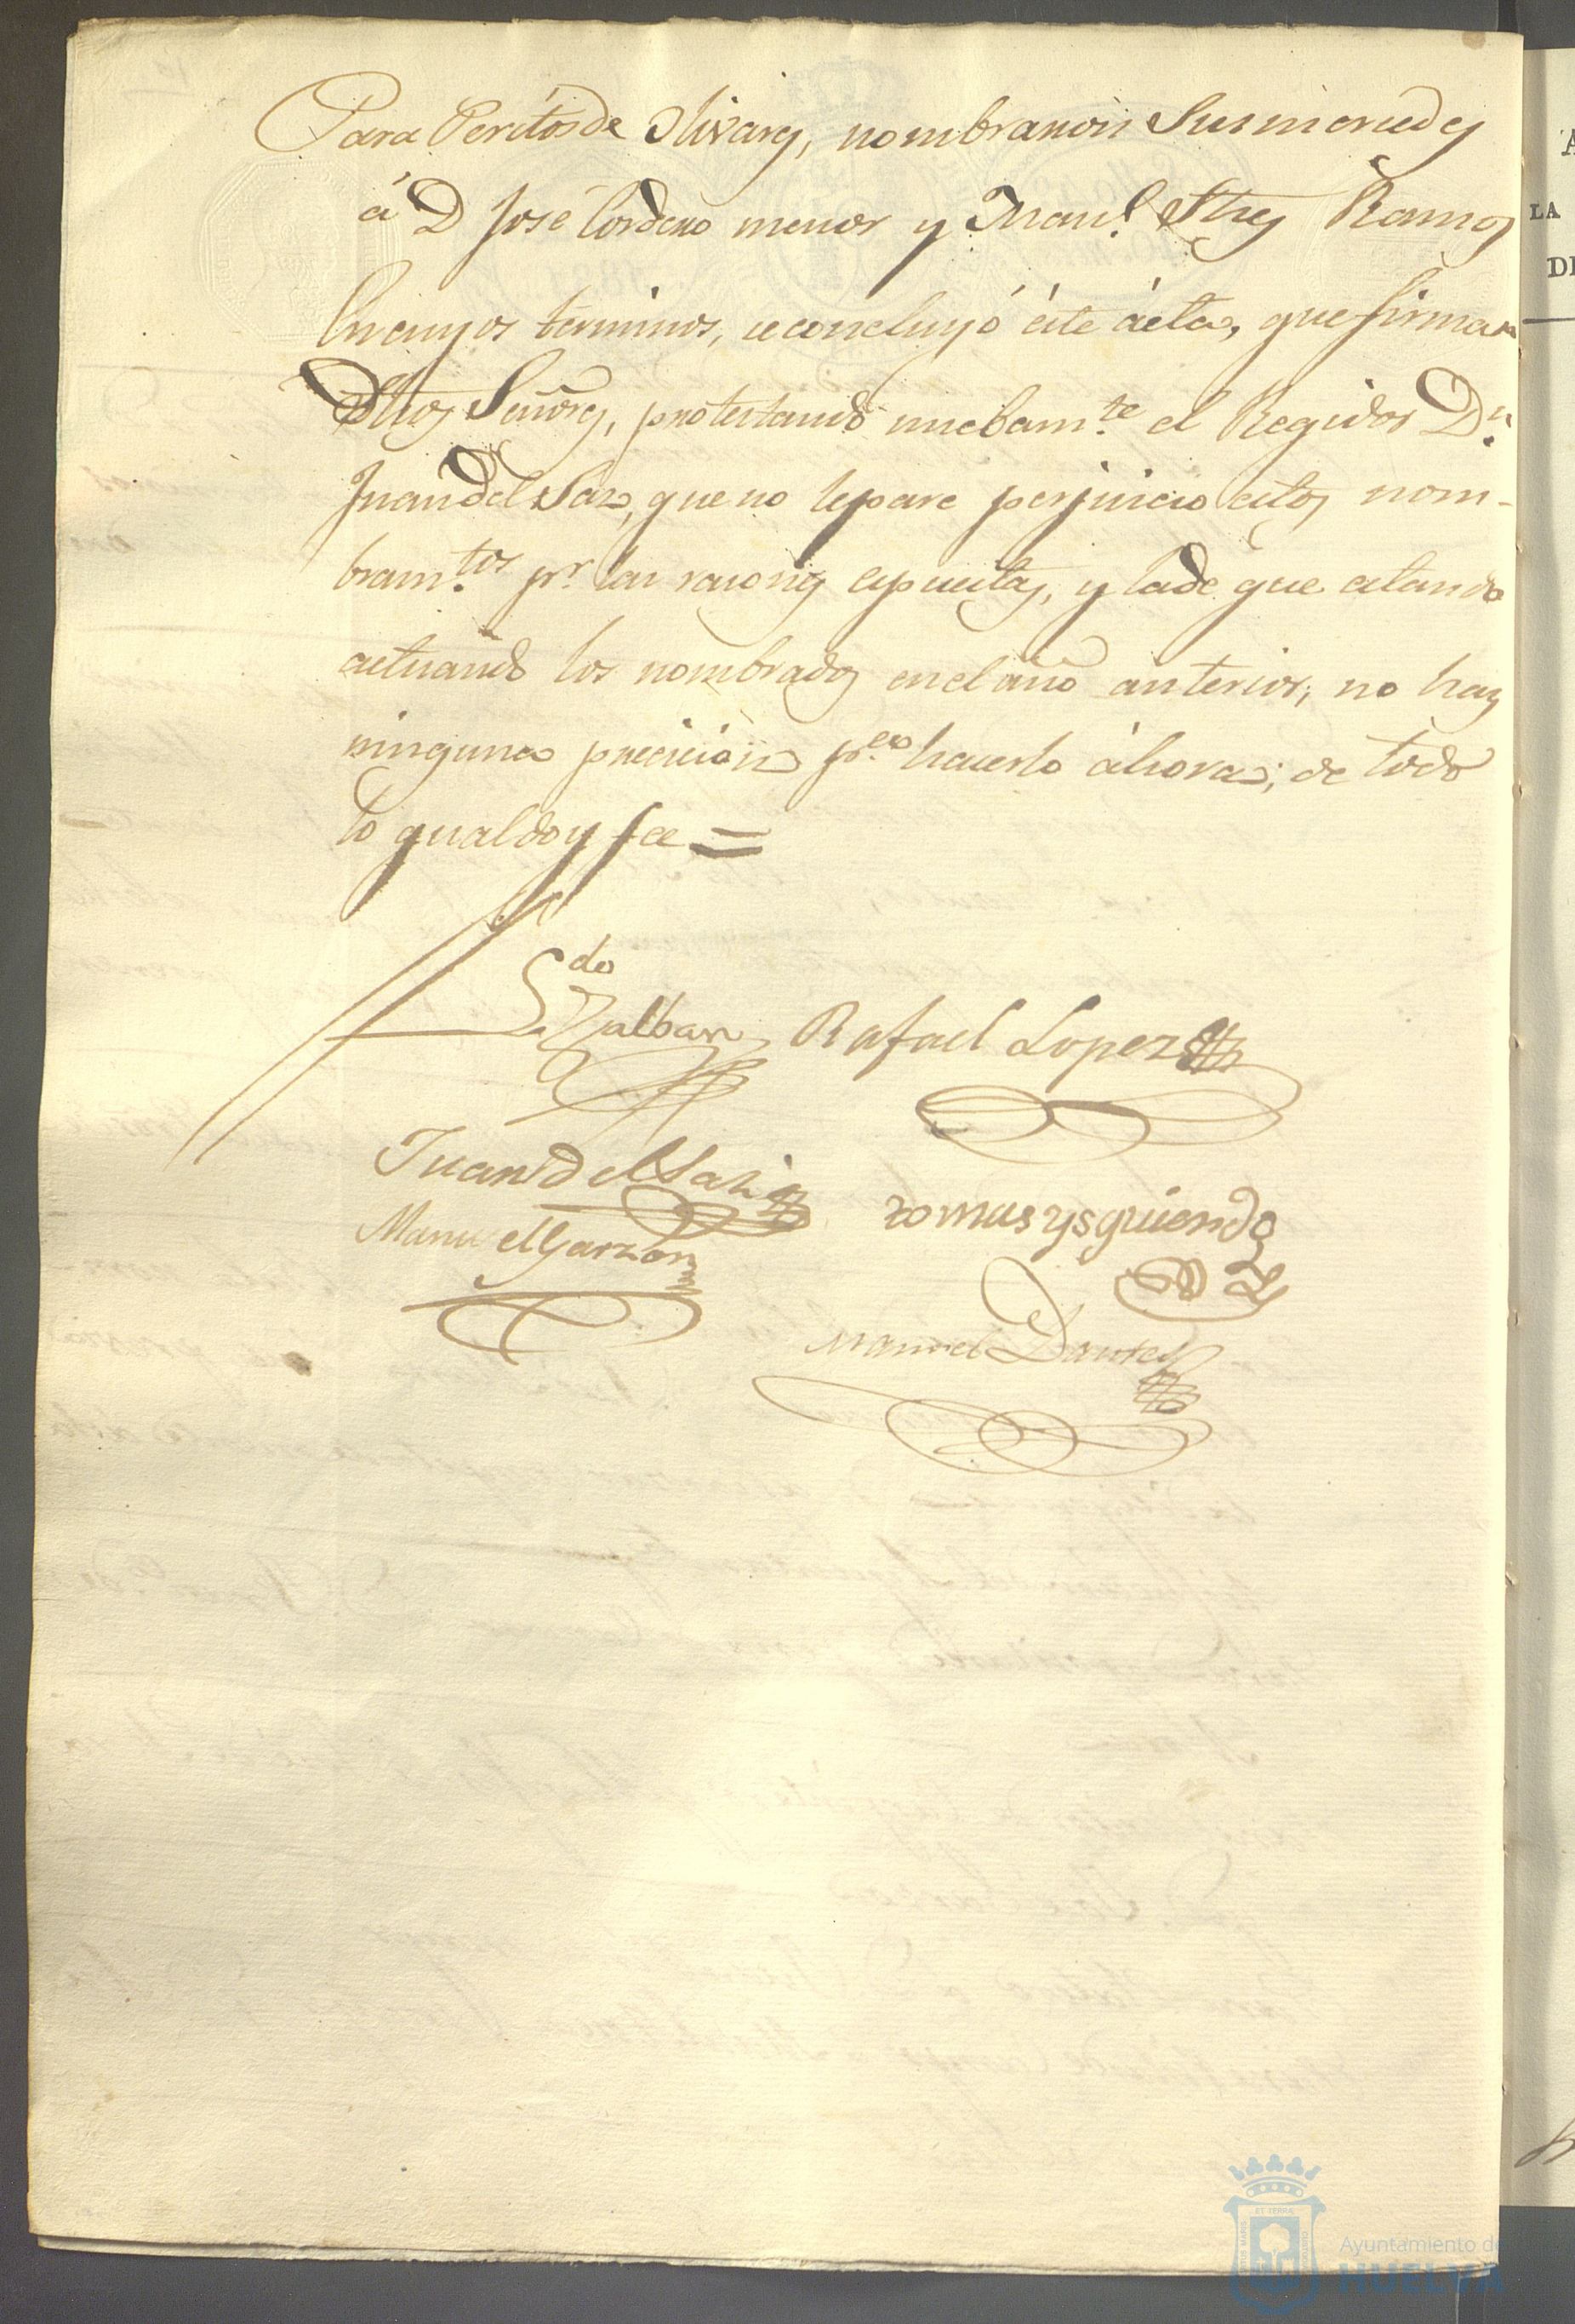 Para Peritos de Olivares, nombraron Sus mercedes
á D José Cordero menor y Man.l Ramos
En cuyos terminos, se concluyó éste ácta, que firman
Dhos Señores, protestando nuebam.te el Regidor D.n
Juan del Saz, que no le pare perjuicio estos nom-
bram.tos pr las razones espuestas, y la de que estando
actuando los nombrados en el año anterior, no hay
ninguna precicion p.a hacerlo áhora; de todo
lo qual doy fee =
Rafael Lopez
Juan del Saz
tomas ysquierdo
Manuel Garzon
Manuel
A
LA
DE
Ayuntamiento de
HUELVA